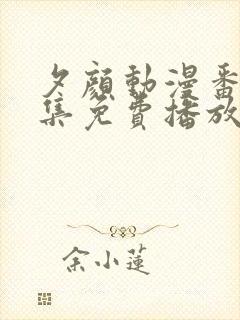 夕顔動漫番
集免費播放
余小蓮